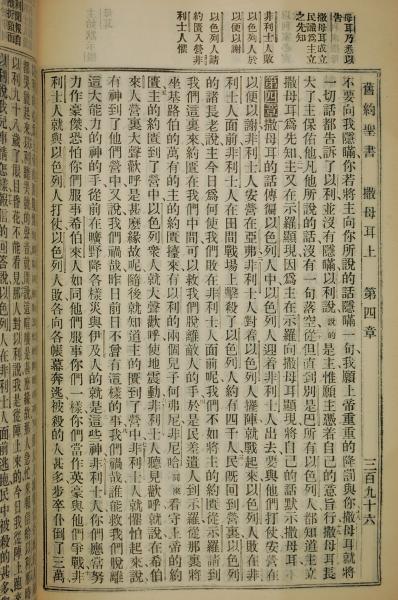 舊約聖書　撒母耳上　第四章　三百九十六
不要向我隱瞞你若將主向你所說的話隱瞞一句我願上帝重重的降罰與你撒母耳就將
一切話都告訴了以利並沒有隱瞞以利說說的是主惟願主憑着自己的意旨行撒母耳長
大了主保佑他凡他所說的話沒有一句落空從但直到別是巴所有以色列人都知道主立
撒母耳爲先知主又在示羅顯現因爲主在示羅向撒母耳顯現將自己的話默示撒母耳
第四章撒母耳的話傳徧以色列人中以色列人迎着非利士人出去要與他們打仗安營在
以便以謝非利士人安營在亞弗非利士人對着以色列人擺陣就戰起來以色列人敗在非
利士人面前非利士人在田間戰場上擊殺了以色列人約有四千人民旣回到營裏以色列
的諸長老說主今日爲何使我們敗在非利士人面前呢我們不如將主的約匱從示羅請到
我們這裏來約匱在我們中間可以救我們脫離敵人的手於是民差遣人到示羅從那裏將
坐基路伯的萬有的主的約匱擡來有以利的兩個兒子何弗尼非尼哈看守上帝的約
匱主的約匱到了營中以色列衆人就大聲歡呼使地震動非利士人聽見歡呼就說在希伯
來人營裏大聲歡呼是甚麼緣故呢隨後就知道主的匱到了營中非利士人就懼怕起來說
有神到了他們營中又說我們禍哉昨日前日不曾有這樣的事我們禍哉誰能救我們脫離
這大能力的神的手從前在曠野降各樣災與伊及人的就是這些神非利士人你們應當努
力作豪傑恐怕你們服事希伯來人如同他們服事你們一樣你們當作英豪與他們爭戰非
利士人就與以色列人打仗以色列人敗各向各帳幕奔逃被殺的甚多步卒仆倒了三萬
母耳乃悉以
告
撒母耳成立
民識爲主立
之先知
非利士人敗
以色列人於
以便以謝
以色列人請
約匱入營非
利士人懼